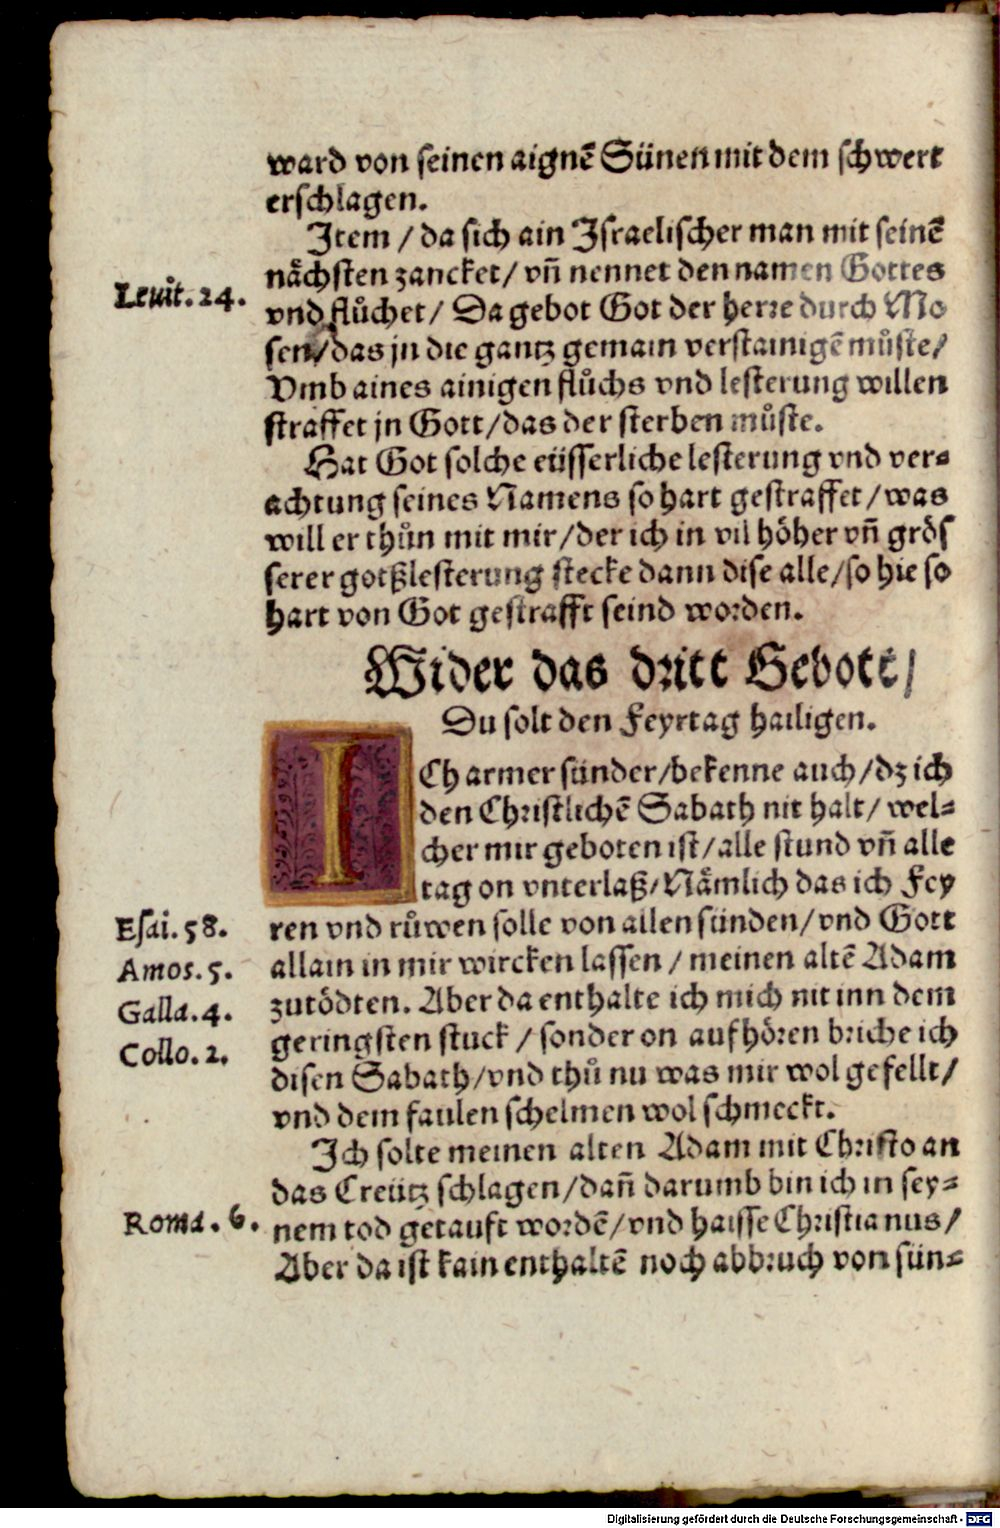 ward von seinen aignē Sünen mit dem schwert
erschlagen.
Item / da sich ain Israelischer man mit seinē
nächsten zancket / vñ nennet den namen Gottes
Leuit. 24.
vnd flůchet / Da gebot Got der herre durch Mo
sen / das jn die gantz gemain verstainigē můste /
Vmb aines ainigen flůchs vnd lesterung willen
straffet jn Gott / das der sterben můste.
Hat Got solche eüsserliche lesterung vnd ver=
achtung seines Namens so hart gestraffet / was
will er thůn mit mir / der ich in vil höher vñ grös
serer gotßlesterung stecke dann dise alle / so hie so
hart von Got gestrafft seind worden.
Wider das dritt Gebott /
Du solt den Feyrtag hailigen.
ICh armer sünder / bekenne auch / dz ich
den Christlichē Sabath nit halt / wel=
cher mir geboten ist / alle stund vñ alle
tag on vnterlaß / Nämlich das ich Fey
Esai. 58.
ren vnd růwen solle von allen sünden / vnd Gott
Amos. 5.
allain in mir wircken lassen / meinen altē Adam
Galla. 4.
zutödten. Aber da enthalte ich mich nit inn dem
Collo. 2.
geringsten stuck / sonder on aufhören briche ich
disen Sabath / vnd thů nu was mir wol gefellt /
vnd dem faulen schelmen wol schmeckt.
Ich solte meinen alten Adam mit Christo an
das Creütz schlagen / dañ darumb bin ich in sey=
Roma. 6.
nem tod getauft wordē / vnd haisse Christianus /
Aber da ist kain enthaltē noch abbruch von sün=
Digitalisierung gefördert durch die Deutsche Forschungsgemeinschaft - DFG